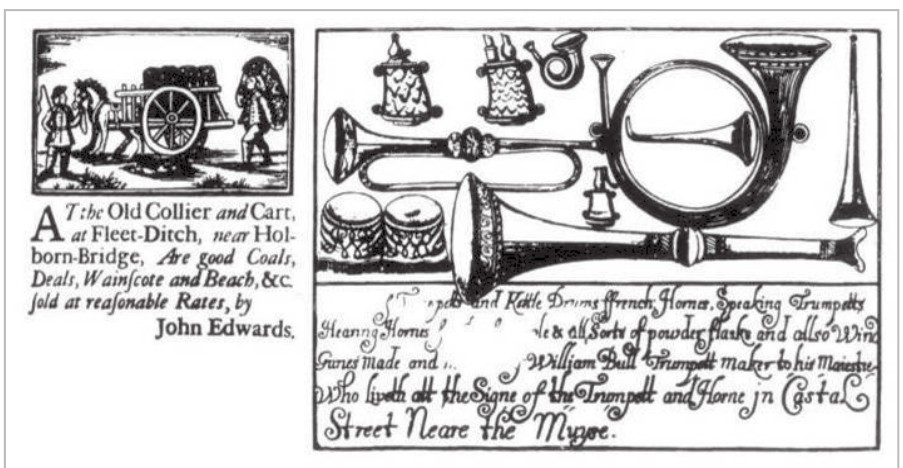 AT the Old Collier and Cart,
at Fleet-Ditch, near Hol-
born-Bridge, Are good Coals,
Deals, Wainſcote and Beach, &c.
ſold at reaſonable Rates, by
John Edwards.
and Kettle Drums ffrench Hornes, Speaking Trumpetts
Hearing Hornes & all Sorts of powder flasks and allso Wind
Gunes Made and William Bull Trumpett maker to his Maiestie
Who liveth att the Signe of the Trumpett and Horne jn Castal
Street Neare the Muyse.